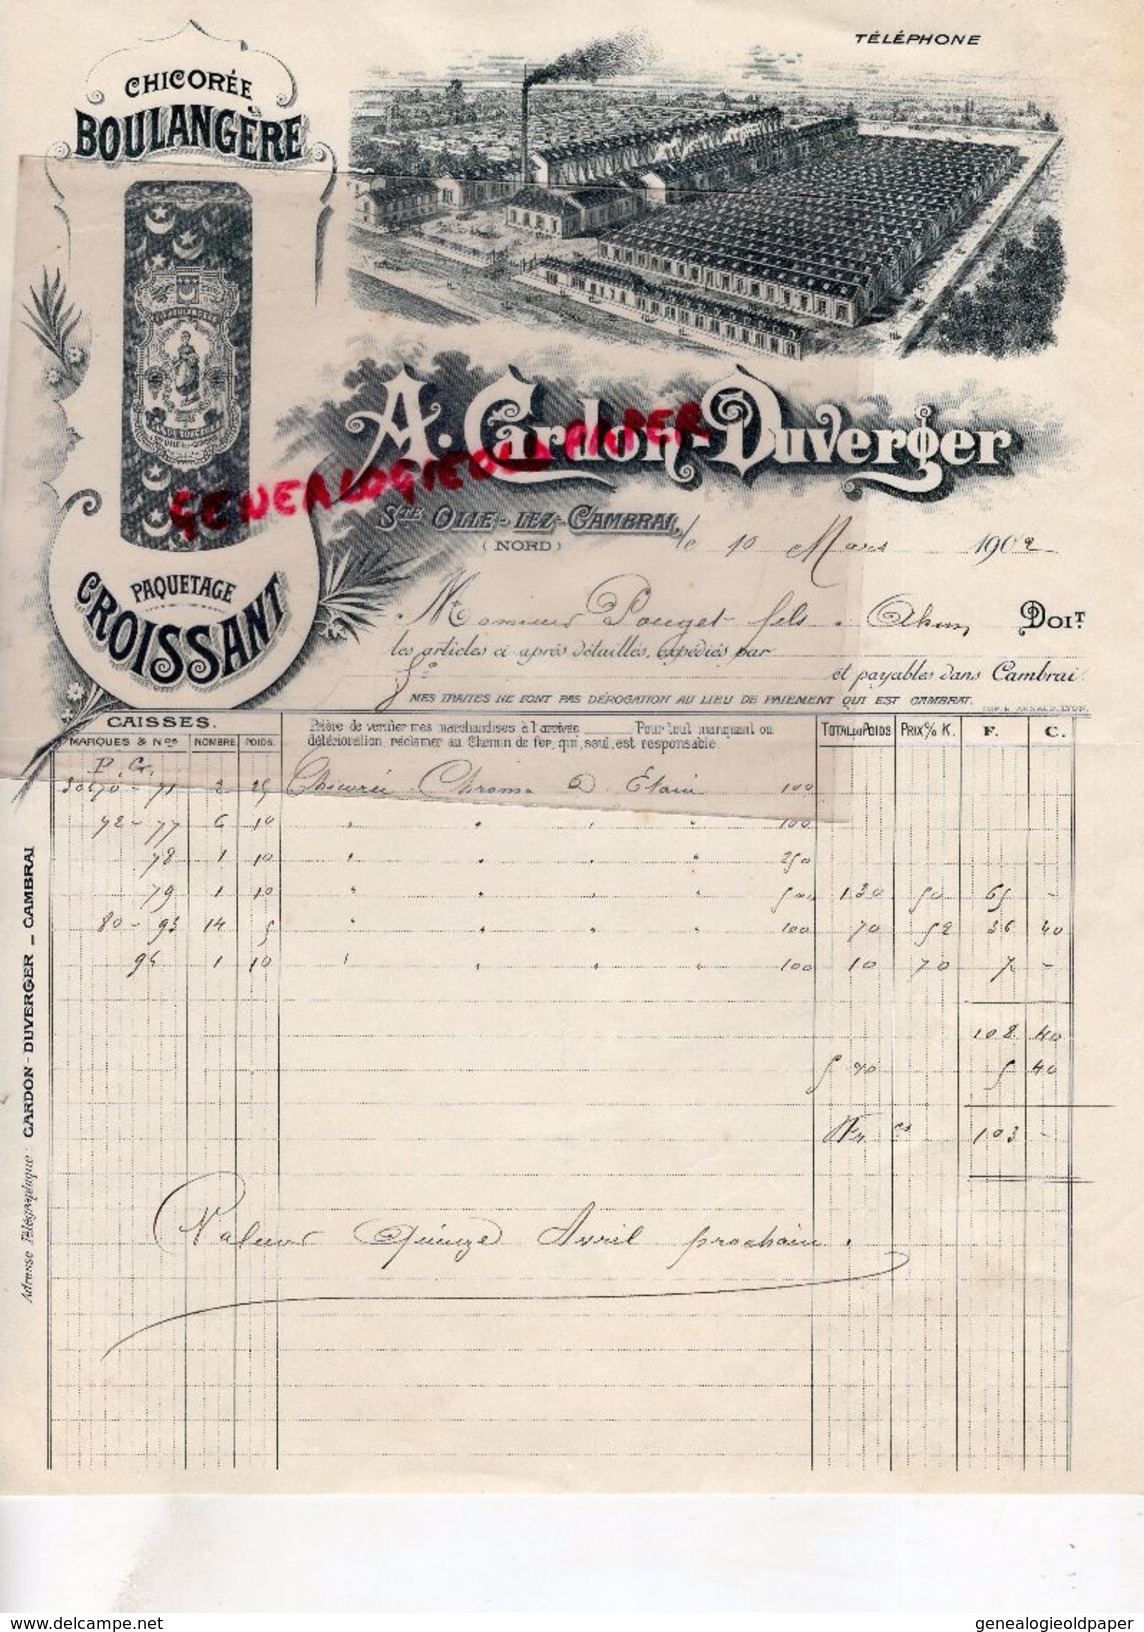 TÉLÉPHONE
CHICORÉE
BOULANGÈRE
A. Cardon-Duverger
GENEALOGIEOLDPAPER
STE OLLE-LEZ-CAMBRAI,
(NORD)
le 10 Mars 1902
PAQUETAGE
CROISSANT
Monsieur Pouget fils à Ahun DOIT
les articles ci-après détaillés, expédiés par
et payables dans Cambrai.
MES TRAITES NE FONT PAS DÉROGATION AU LIEU DE PAIEMENT QUI EST CAMBRAI.
IMP. B. ARNAUD, LYON.
CAISSES.
MARQUES & Nos NOMBRE POIDS.
Prière de vérifier mes marchandises à l'arrivée Pour tout manquant ou
détérioration, réclamer au Chemin de fer, qui, seul, est responsable.
TOTAL DU POIDS PRIX % K. F. C.
P. G.
70 - 71 2 25 Chicorée Chromo D Etain 100
72 - 77 6 10 " " " " 100
78 1 10 " " " " 250
79 1 10 " " " " 500 130 50 65 -
80 - 93 14 5 " " " " 100 70 52 36 40
94 1 10 " " " " 100 10 70 7 -
108 40
5 40
103 -
Valeur Quinze Avril prochain.
Adresse Télégraphique: CARDON-DUVERGER _ CAMBRAI
genealogieoldpaper genealogieoldpaper